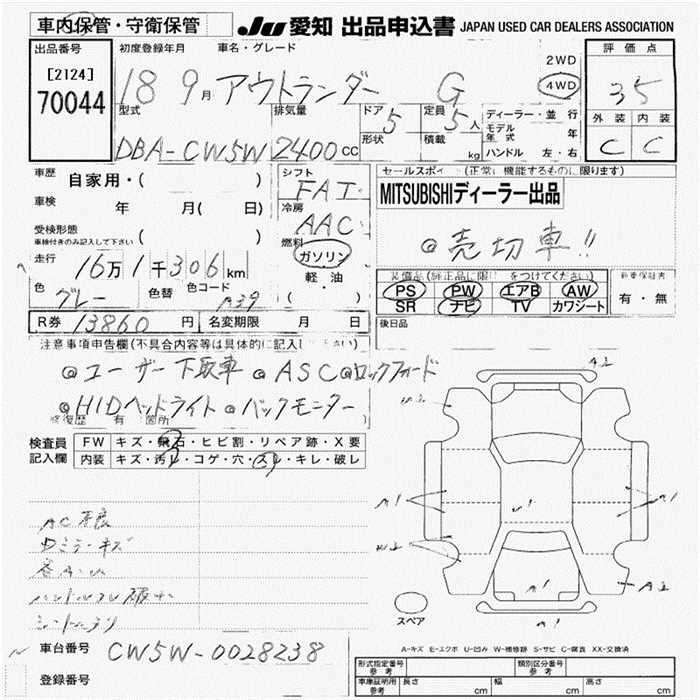 車内保管・守衛保管
JU 愛知 出品申込書 JAPAN USED CAR DEALERS ASSOCIATION
出品番号
[2124]
70044
初度登録年月 車名・グレード
18 9月 アウトランダー G
2WD
4WD
評価点
35
外装 内装
C C
型式 排気量 ドア 定員
DBA-CW5W 2400cc 5 5人
形状 積載 kg
ディーラー・並行
モデル年式 年
ハンドル 左・右
車歴 自家用・( )
車検 年 月( 日)
受検形態
車検付きのみ記入して下さい ( )
走行 16万1千306km
色 グレー
色替 色コード A39
シフト FAT
冷房 AAC
燃料 ガソリン
軽・油
( )
セールスポイント(正常に機能するものに限ります)
MITSUBISHIディーラー出品
◎売切車!!
装備品(純正品に限り をつけてください)
PS PW エアB AW
SR ナビ TV カワシート
新車保証書
有・無
R券 13860円 名変期限 月 日
後日品
注意事項申告欄(不具合内容等は具体的に記入して下さい)
◎ユーザー下取車 ◎ASC ◎ロックフォード
◎HIDヘッドライト ◎バックモニター
修復歴 有 箇所
検査員記入欄
FW キズ・飛石・ヒビ割・リペア跡・X要
内装 キズ・汚レ・コゲ・穴・スレ・キレ・破レ
A2
W2
A1 A1
U1
W2
A1
A2
スペア
A-キズ E-エクボ U-凹み W-補修跡 S-サビ C-腐食 XX-交換済
車台番号 CW5W-0028238
登録番号
形式指定番号 参考
類別区分番号 参考
車庫証明用 参考 長さ cm 幅 cm 高さ cm